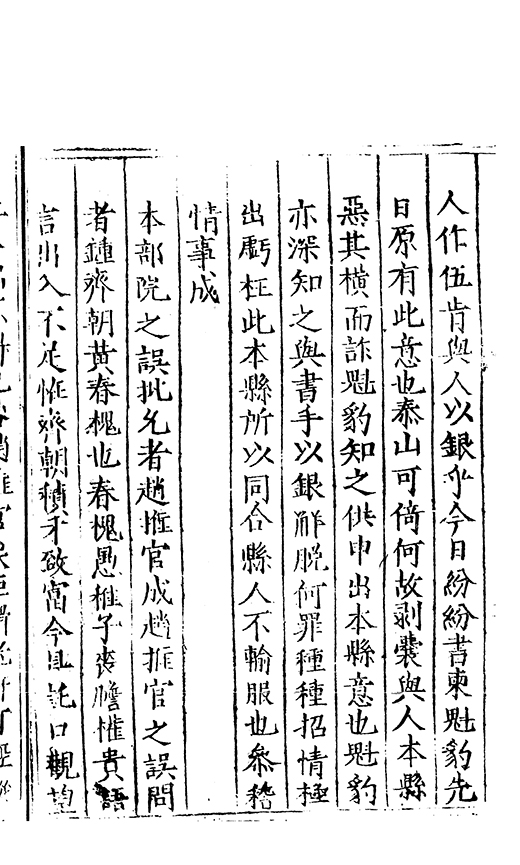 人作伍肯與人以銀乎今日紛紛書柬魁豹先
日原有此意也泰山可倚何故剥囊與人本縣
惡其横而詐魁豹知之供申出本縣意也魁豹
亦深知之與書手以銀觧脱何罪種種招情極
出虧枉此本縣所以同合縣人不輸服也叅稽
情事成
本部院之誤批允者趙推官成趙推官之誤問
者鍾齊朝黄春槐也春槐愚稚子喪膽權貴語
言出入不足恠齊朝積才致富今且託口觀望